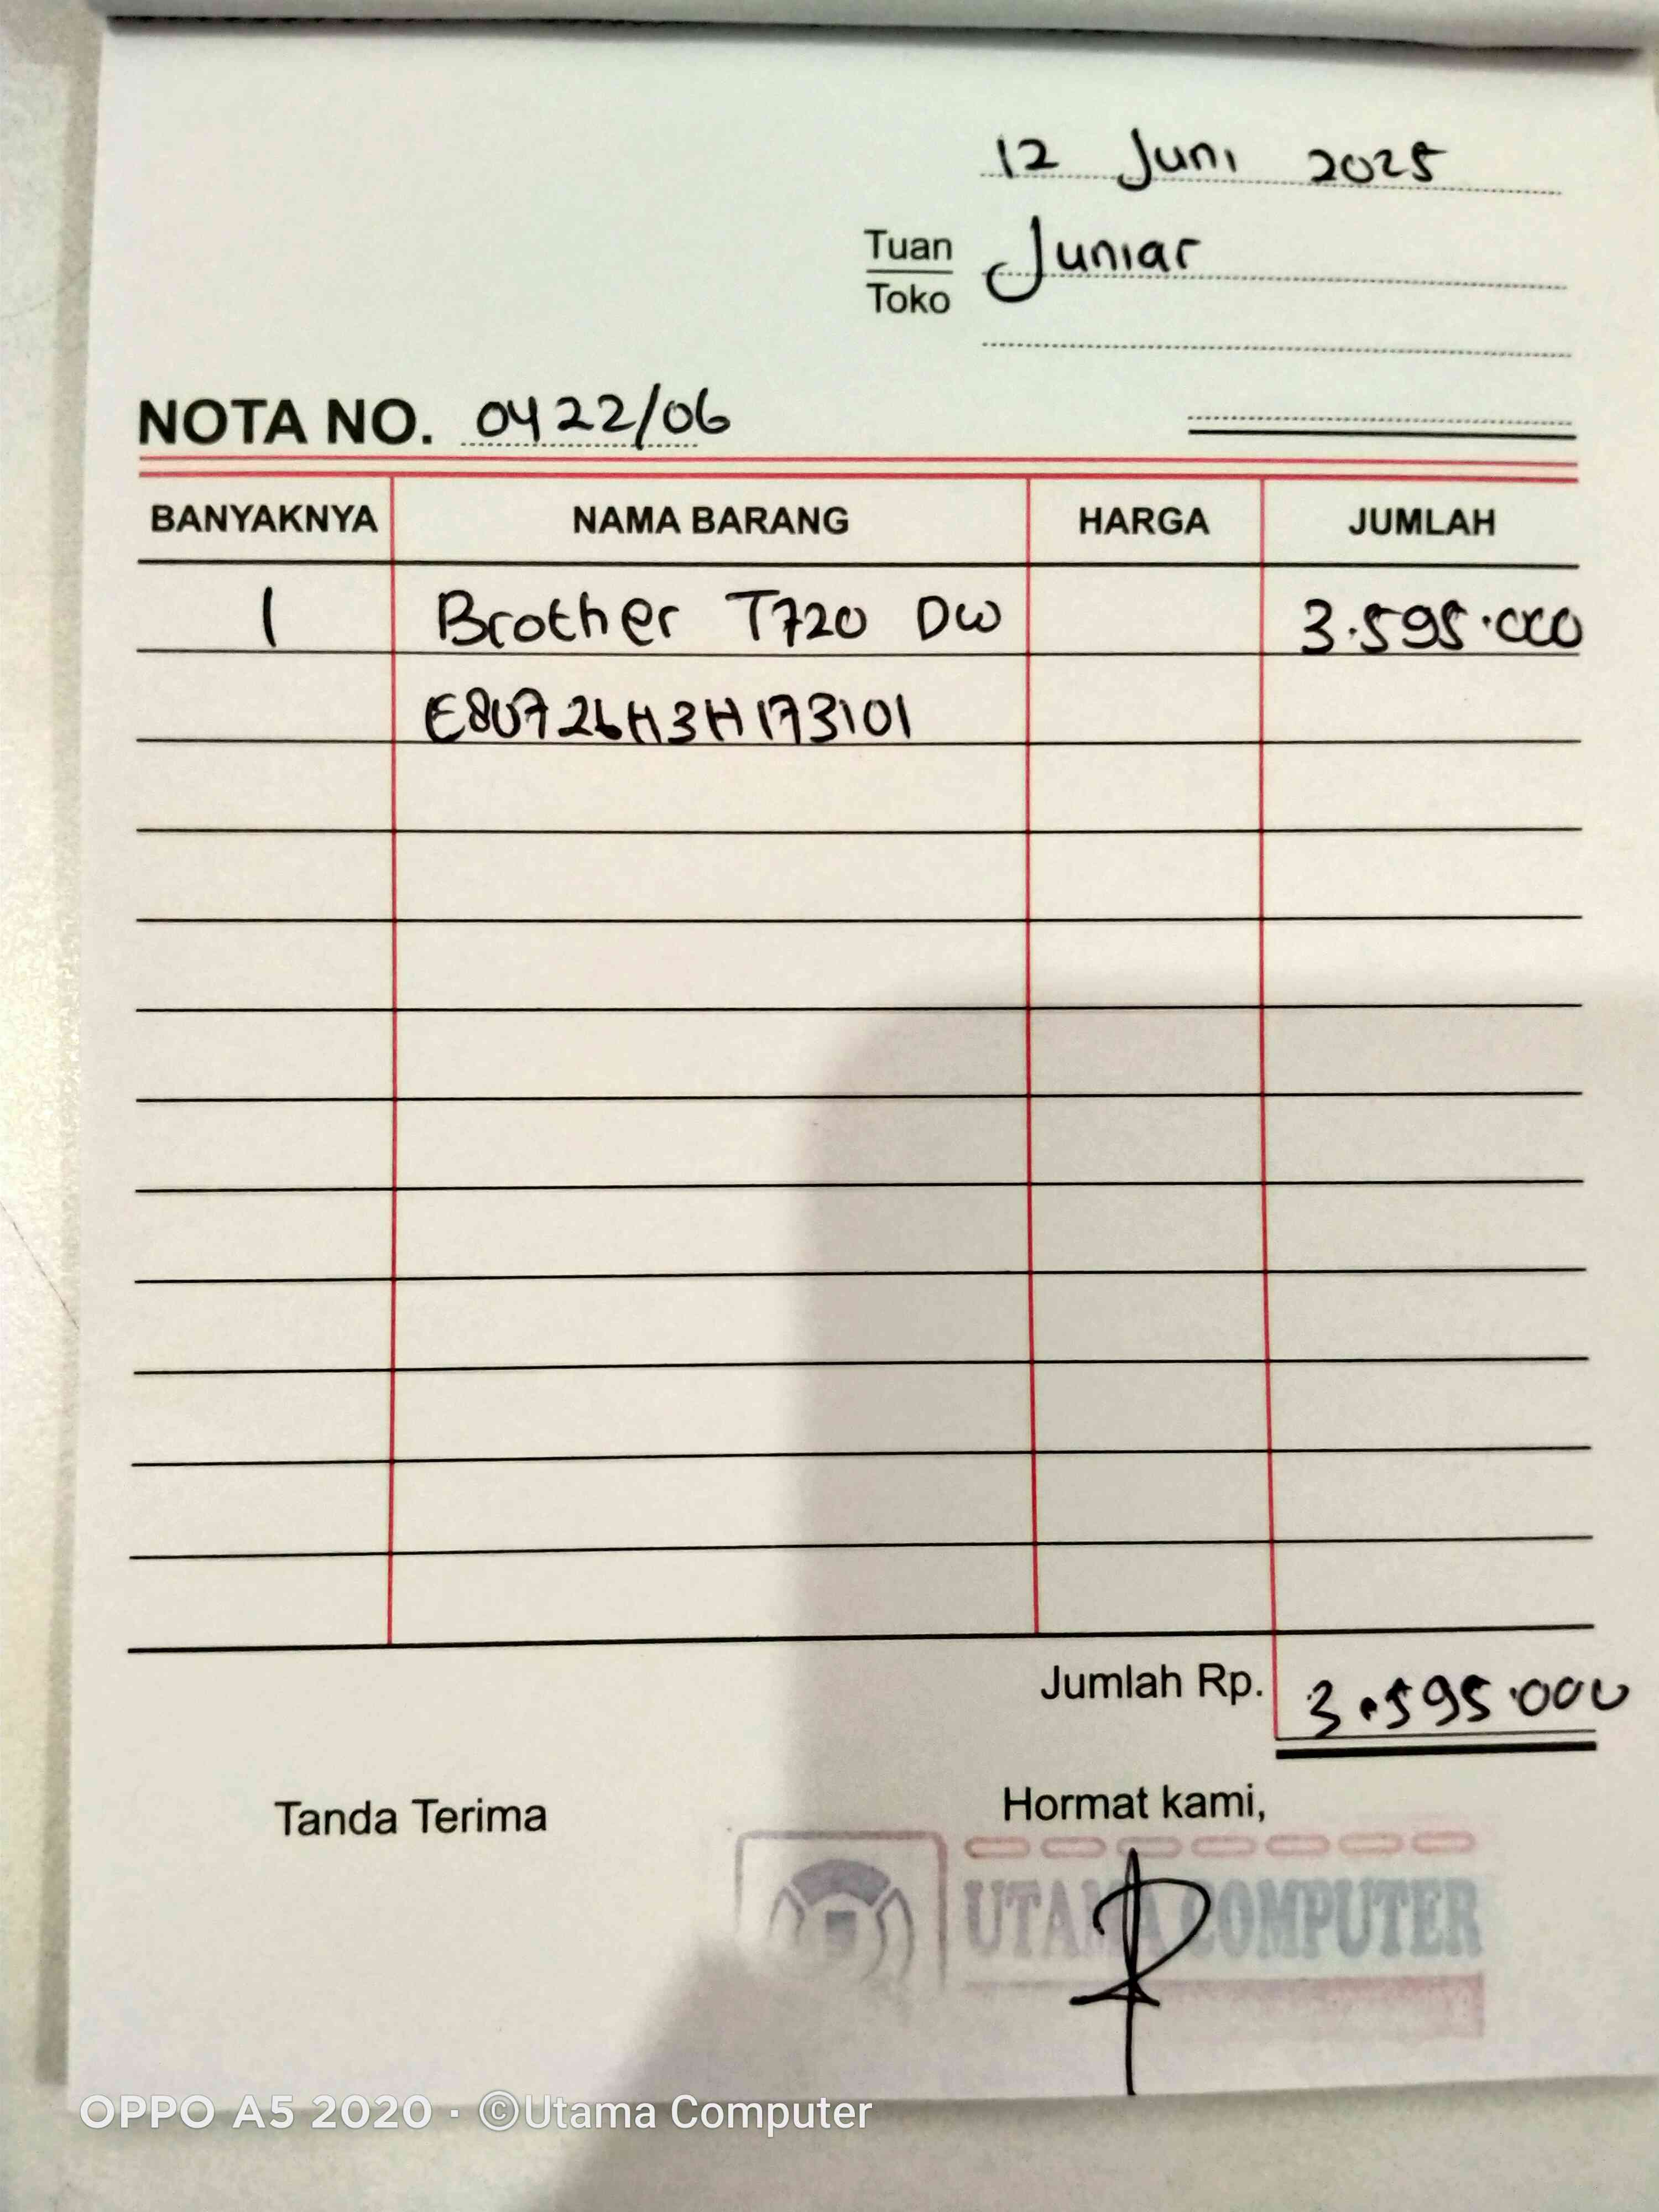 12 Juni 2025
Tuan Juniar
Toko
NOTA NO. 0422/06
BANYAKNYA NAMA BARANG HARGA JUMLAH
1 Brother T720 DW 3.595.000
E80726H3H173101
Jumlah Rp. 3.595.000
Tanda Terima Hormat kami,
UTAMA COMPUTER
OPPO A5 2020 · ©Utama Computer